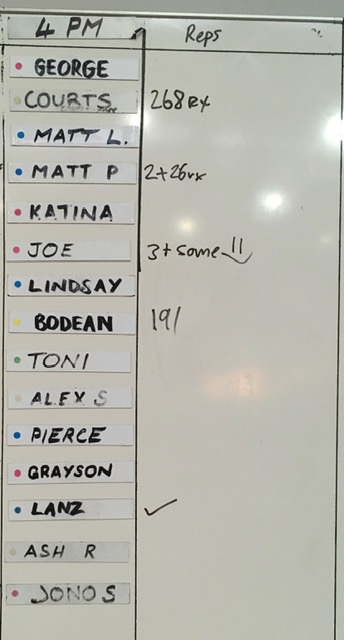 4 PM Reps
GEORGE
COURTS 268 Rx
MATT L.
MATT P 2+26rx
KATINA
JOE 3+ some
LINDSAY
BODEAN 191
TONI
ALEX S
PIERCE
GRAYSON
LANZ ✓
ASH R
JONO S